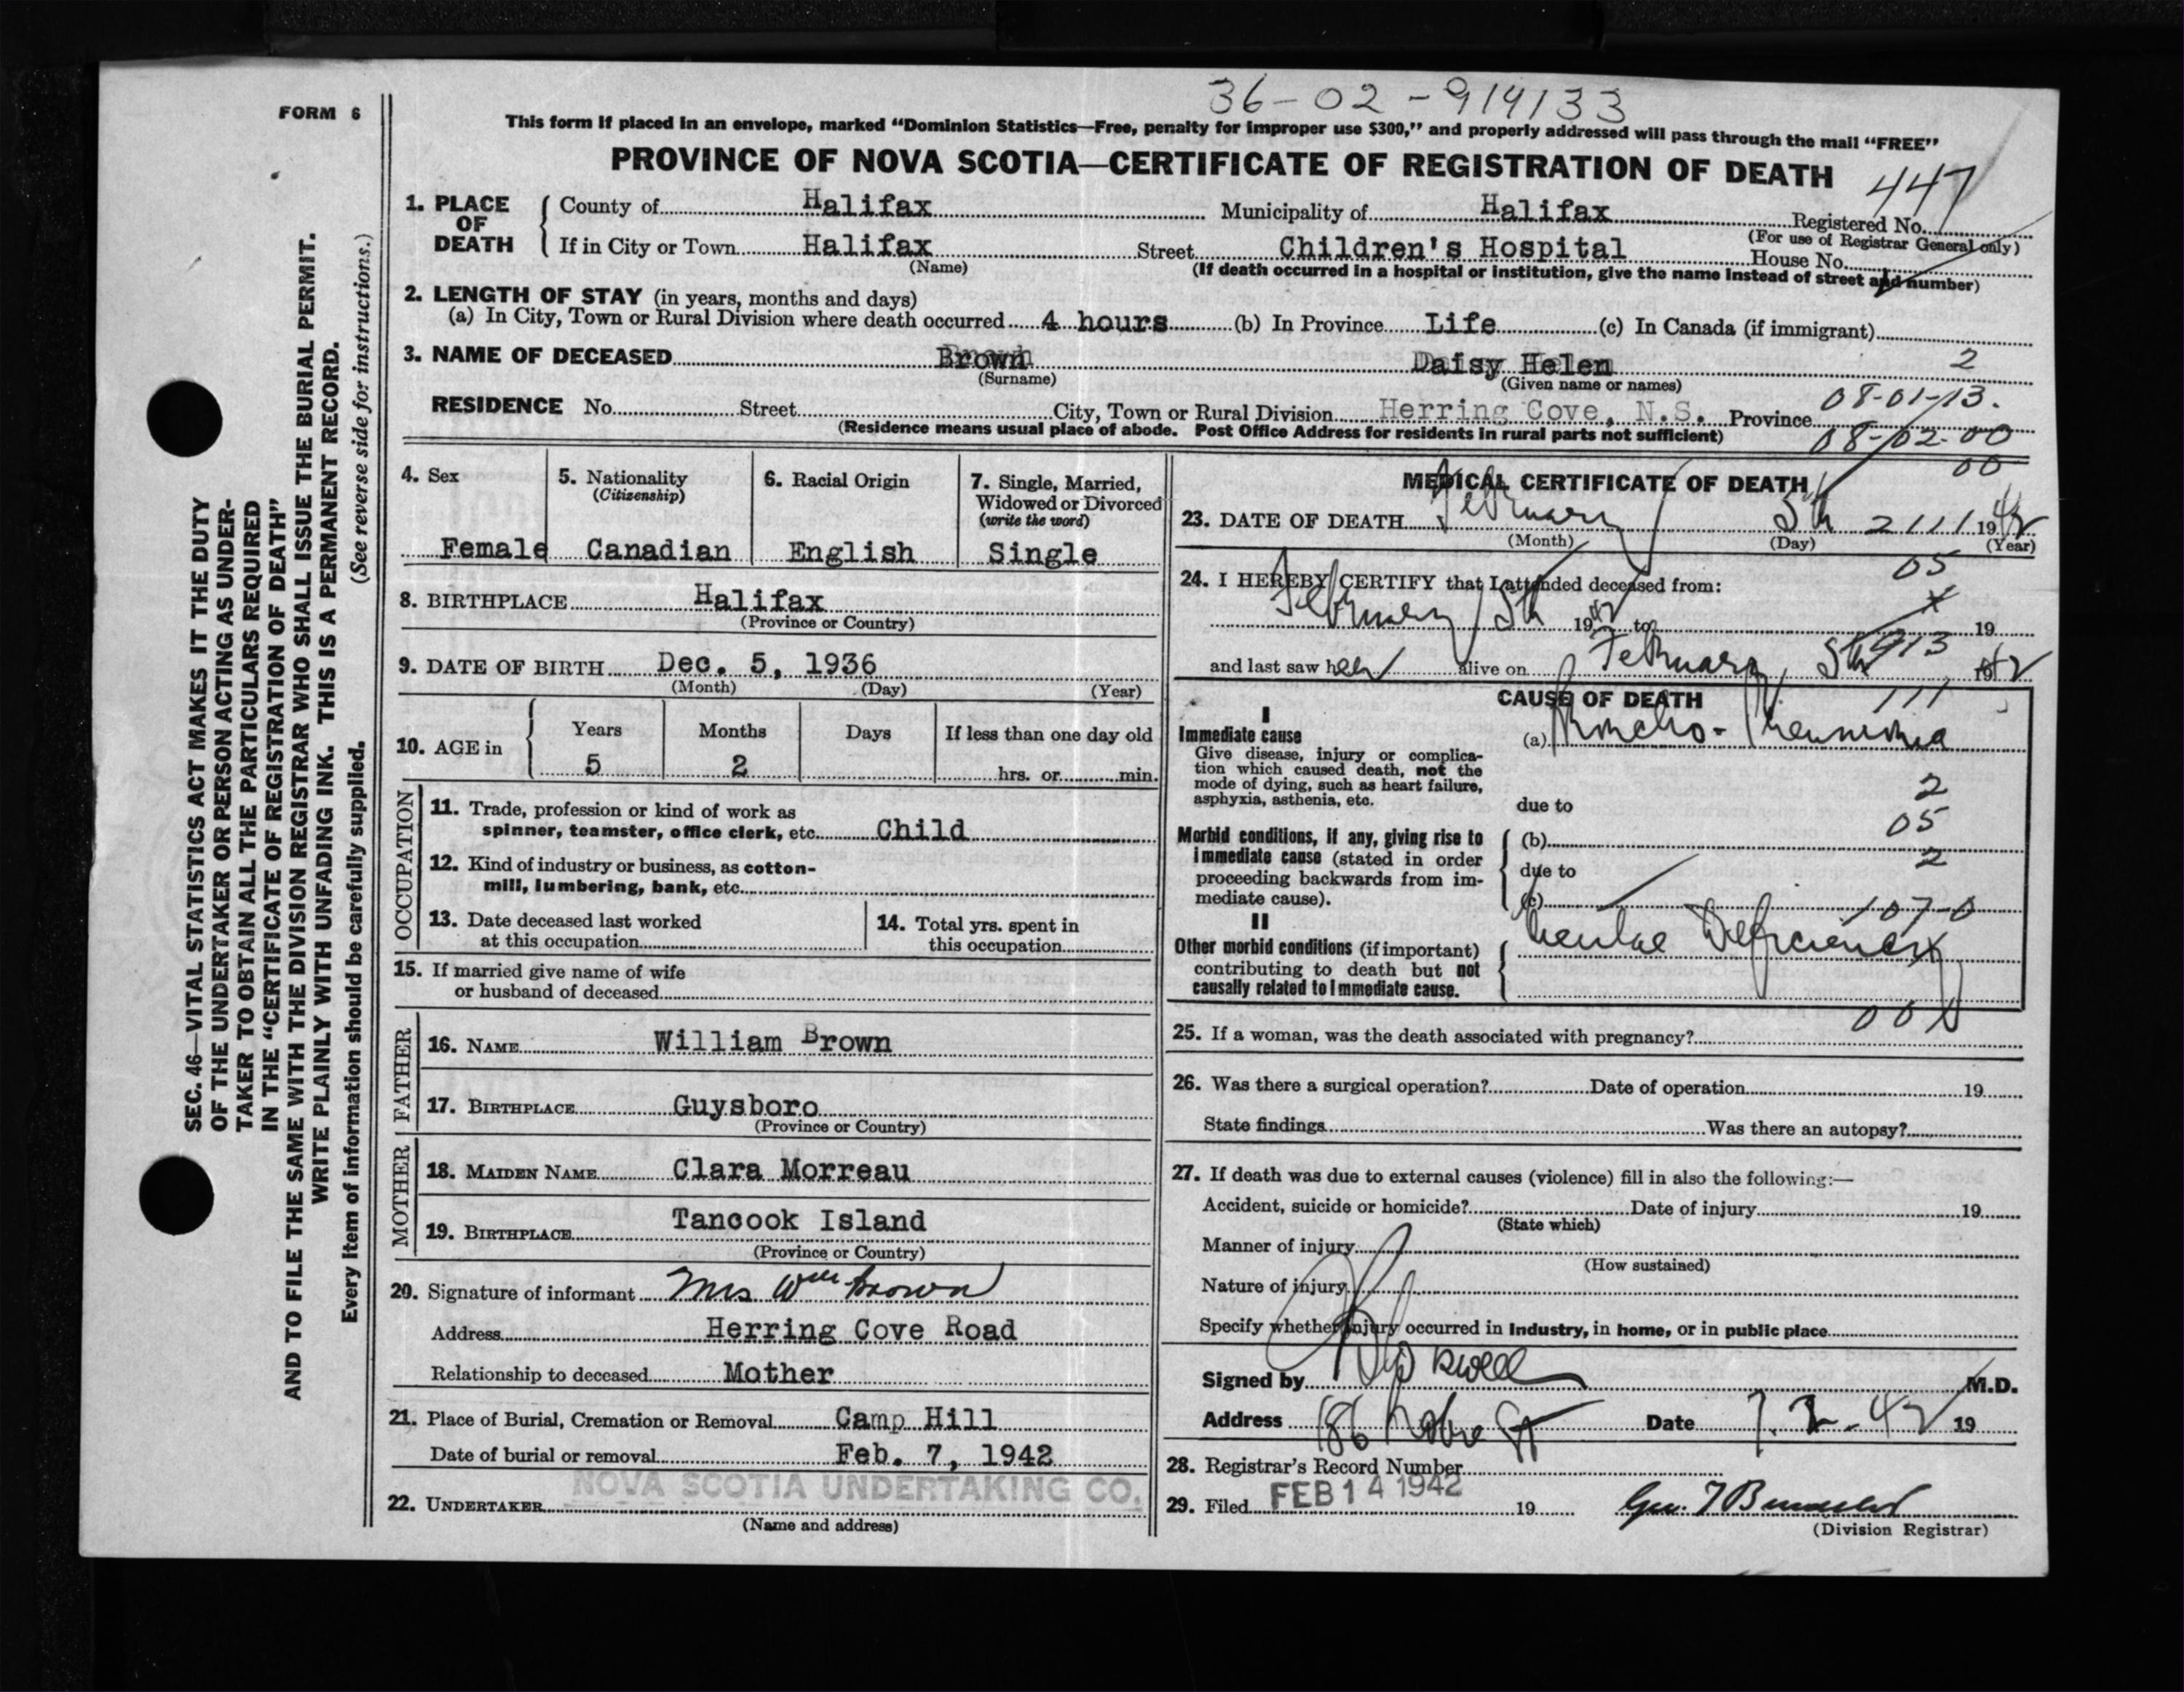 36-02-919133
FORM 6
This form if placed in an envelope, marked “Dominion Statistics—Free, penalty for improper use $300,” and properly addressed will pass through the mail “FREE”
PROVINCE OF NOVA SCOTIA—CERTIFICATE OF REGISTRATION OF DEATH
447
1. PLACE OF DEATH County of Halifax Municipality of Halifax Registered No.
(For use of Registrar General only)
If in City or Town Halifax Street Children's Hospital House No.
(Name) (If death occurred in a hospital or institution, give the name instead of street and number)
2. LENGTH OF STAY (in years, months and days)
(a) In City, Town or Rural Division where death occurred 4 hours (b) In Province Life (c) In Canada (if immigrant)
3. NAME OF DECEASED Brown Daisy Helen 2
(Surname) (Given name or names)
08-01-13.
RESIDENCE No. Street City, Town or Rural Division Herring Cove, N.S. Province
(Residence means usual place of abode. Post Office Address for residents in rural parts not sufficient) 08-02-00
00
4. Sex 5. Nationality 6. Racial Origin 7. Single, Married,
(Citizenship) Widowed or Divorced
(write the word)
Female Canadian English Single
8. BIRTHPLACE Halifax
(Province or Country)
9. DATE OF BIRTH Dec. 5, 1936
(Month) (Day) (Year)
10. AGE in Years Months Days If less than one day old
5 2 hrs. or min.
OCCUPATION
11. Trade, profession or kind of work as
spinner, teamster, office clerk, etc. Child
12. Kind of industry or business, as cotton-
mill, lumbering, bank, etc.
13. Date deceased last worked
at this occupation
14. Total yrs. spent in
this occupation
15. If married give name of wife
or husband of deceased
FATHER
16. NAME William Brown
17. BIRTHPLACE Guysboro
(Province or Country)
MOTHER
18. MAIDEN NAME Clara Morreau
19. BIRTHPLACE Tancook Island
(Province or Country)
20. Signature of informant Mrs Wm Brown
Address Herring Cove Road
Relationship to deceased Mother
21. Place of Burial, Cremation or Removal Camp Hill
Date of burial or removal Feb. 7, 1942
NOVA SCOTIA UNDERTAKING CO.
22. UNDERTAKER
(Name and address)
MEDICAL CERTIFICATE OF DEATH
23. DATE OF DEATH February 5th 2111 1942
(Month) (Day) (Year)
05
24. I HEREBY CERTIFY that I attended deceased from:
February 5th 1942 to 19
913
and last saw her alive on February 5th 1942
CAUSE OF DEATH
111
I
Immediate cause
Give disease, injury or complica-
tion which caused death, not the
mode of dying, such as heart failure,
asphyxia, asthenia, etc.
(a) Broncho-Pneumonia
2
due to
05
Morbid conditions, if any, giving rise to
immediate cause (stated in order
proceeding backwards from im-
mediate cause).
(b)
2
due to
(c) 107-0
II
Other morbid conditions (if important)
contributing to death but not
causally related to immediate cause.
Mental Deficiency
00
25. If a woman, was the death associated with pregnancy?
26. Was there a surgical operation? Date of operation 19
State findings Was there an autopsy?
27. If death was due to external causes (violence) fill in also the following:—
Accident, suicide or homicide? Date of injury 19
(State which)
Manner of injury
(How sustained)
Nature of injury
Specify whether injury occurred in industry, in home, or in public place
Signed by M.D.
Address 186 St Date 7.2.42 19
28. Registrar's Record Number
29. Filed FEB 14 1942 19
(Division Registrar)
SEC. 46—VITAL STATISTICS ACT MAKES IT THE DUTY
OF THE UNDERTAKER OR PERSON ACTING AS UNDER-
TAKER TO OBTAIN ALL THE PARTICULARS REQUIRED
IN THE “CERTIFICATE OF REGISTRATION OF DEATH”
AND TO FILE THE SAME WITH THE DIVISION REGISTRAR WHO SHALL ISSUE THE BURIAL PERMIT.
WRITE PLAINLY WITH UNFADING INK. THIS IS A PERMANENT RECORD.
Every item of information should be carefully supplied. (See reverse side for instructions.)